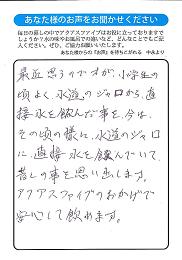 あなた様のお声をお聞かせください
毎日の暮しの中でアクアスファイブはお役に立っておりますで
しょうか?水の味やお風呂での違いなど、どんなことでもご記
入ください。ぜひ、ご協力お願いいたします。
あなた様からの『お声』を待ちこがれる 中永より
最近思うのですが、小学生の
頃よく、水道のジャロから、直
接水を飲んだ事を、今は、
その頃の様に、水道のジャロ
に、直接水を飲んでいて、
昔しの事を思い出します。
アクアスファイブのおかげで
安心して飲めます。